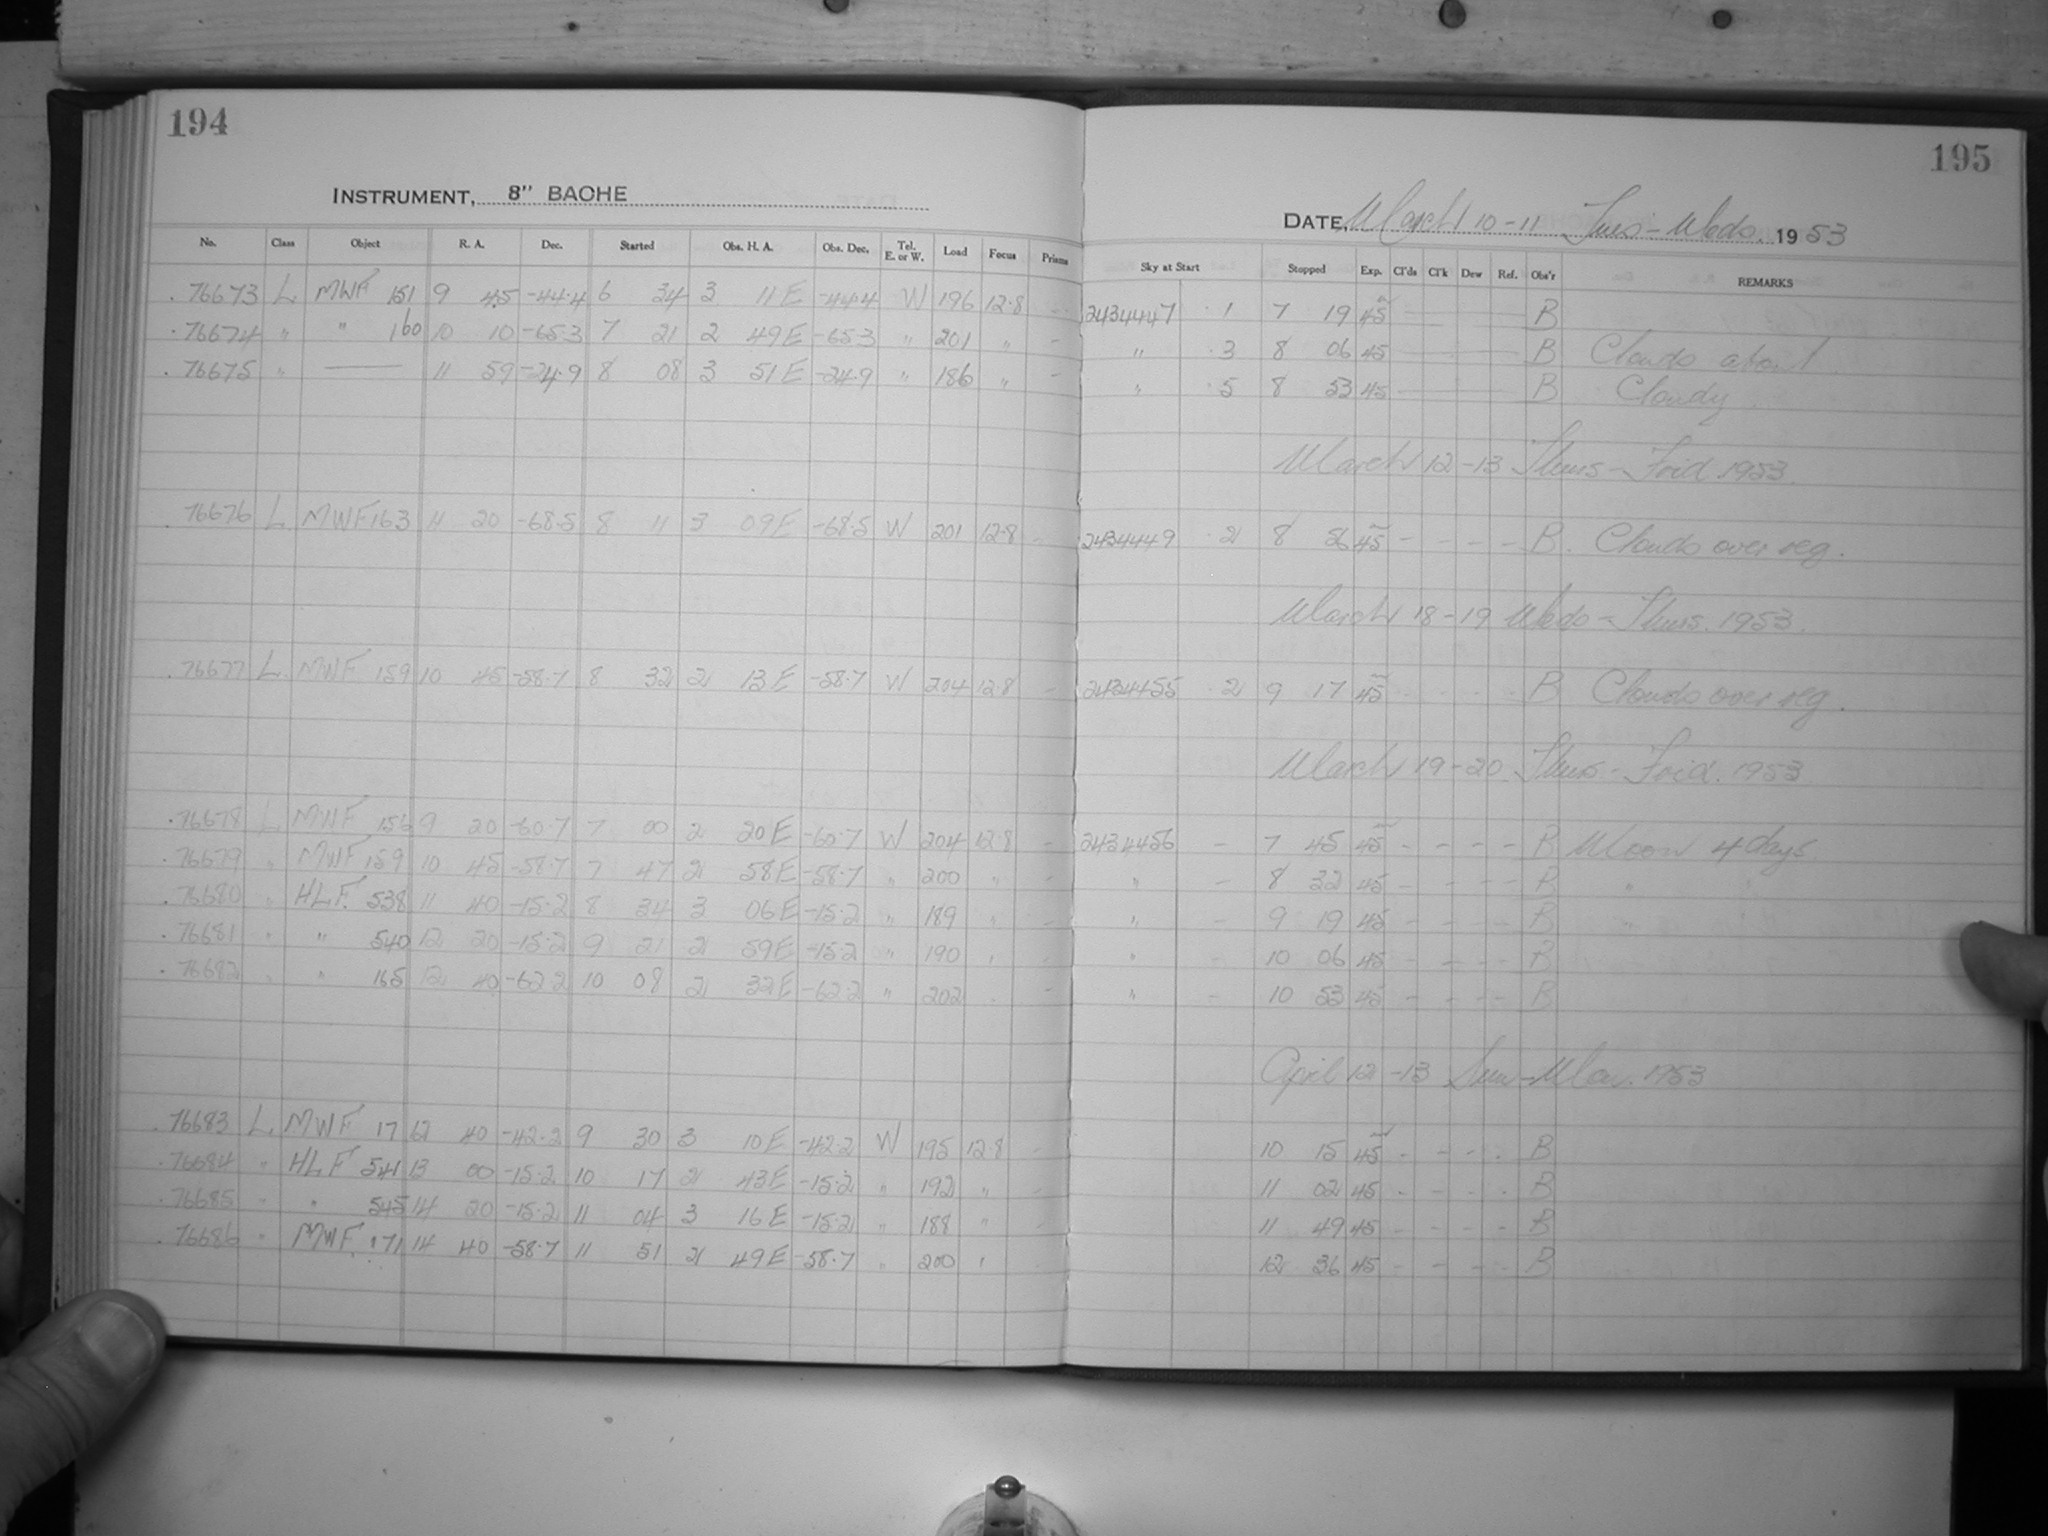 194
INSTRUMENT, 8" BAOHE
No. Class Object R. A. Dec. Started Obs. H. A. Obs. Dec. Tel. E. or W. Load Focus Prisms
76673 L MWF 151 9 45 -44.4 6 34 3 11 E -44.4 W 196 12.8 -
76674 " " 160 10 10 -65.3 7 21 2 49 E -65.3 " 201 " -
76675 " — 11 59 -24.9 8 08 3 51 E -24.9 " 186 " -
76676 L MWF 163 11 20 -68.5 8 11 3 09 E -68.5 W 201 12.8 -
76677 L MWF 159 10 45 -58.7 8 32 2 13 E -58.7 W 204 12.8 -
76678 L MWF 156 9 20 -60.7 7 00 2 20 E -60.7 W 204 12.8 -
76679 " MWF 159 10 45 -58.7 7 47 2 58 E -58.7 " 200 " -
76680 " HLF 538 11 40 -15.2 8 34 3 06 E -15.2 " 189 " -
76681 " " 540 12 20 -15.2 9 21 2 59 E -15.2 " 190 " -
76682 " " 165 12 40 -62.2 10 08 2 32 E -62.2 " 202 " -
76683 L MWF 17 12 40 -42.2 9 30 3 10 E -42.2 W 195 12.8 -
76684 " HLF 541 13 00 -15.2 10 17 2 43 E -15.2 " 192 " -
76685 " " 545 14 20 -15.2 11 04 3 16 E -15.2 " 188 " -
76686 " MWF 171 14 40 -58.7 11 51 2 49 E -58.7 " 200 "
195
DATE, March 10-11 Tues-Weds. 1953
Sky at Start Stopped Exp. Cl'ds Cl'k Dew Ref. Obs'r REMARKS
2434447 .1 7 19 45 B
" .3 8 06 45 B Clouds about
" .5 8 53 45 B Cloudy
March 12-13 Thurs-Frid. 1953.
2434449 .2 8 56 45 - - - - B. Clouds over reg.
March 18-19 Weds-Thurs. 1953.
2434455 .2 9 17 45 - - - - B Clouds over reg.
March 19-20 Thurs-Frid. 1953
2434456 - 7 45 45 - - - - B Moon 4 days
" - 8 32 45 - - - - B "
" - 9 19 45 - - - - B "
" - 10 06 45 - - - - B
" - 10 53 45 - - - - B
April 12-13 Sun-Mon. 1953
10 15 45 - - - - B
11 02 45 - - - - B
11 49 45 - - - - B
12 36 45 - - - - B